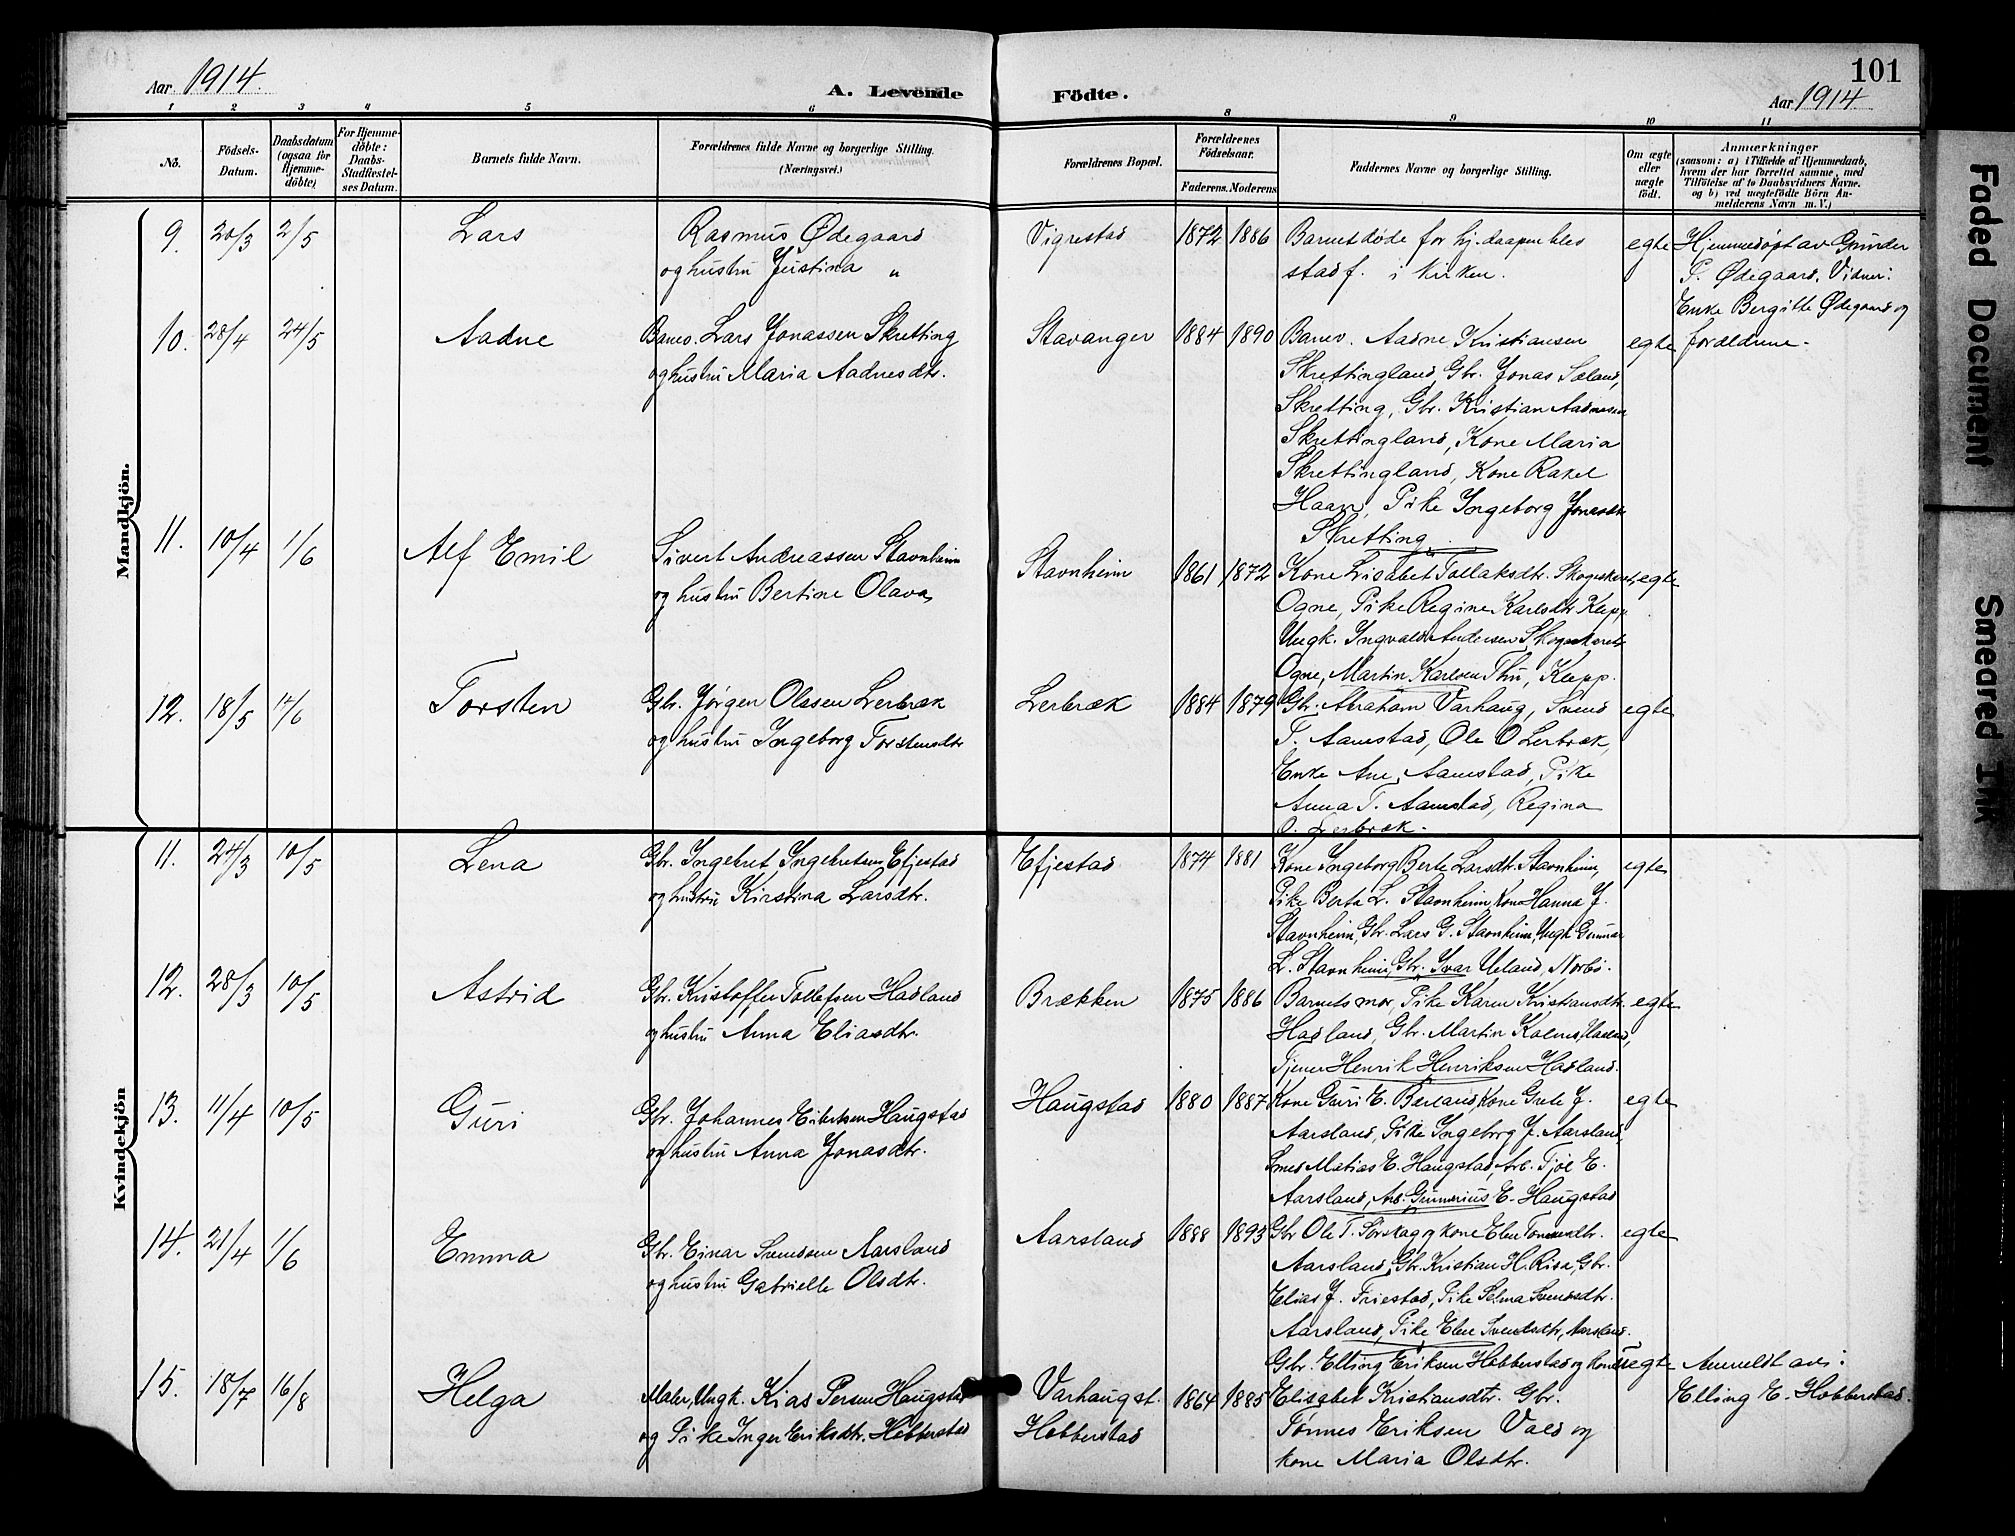 Aar 1914.
A. Levende Födte.
101
Aar 1914
1 2 3 4 5 6 8 9 10 11
No.
Födsels-Datum.
Daabsdatum (ogsaa for Hjemme-döbte)
For Hjemme-döbte: Daabs-Stadfæstel-ses Datum.
Barnets fulde Navn.
Forældrenes fulde Navne og borgerlige Stilling. (Næringsvei.)
Forældrenes Bopæl.
Forældrenes Födselsaar.
Faderens. Moderens
Faddernes Navne og borgerlige Stilling.
Om ægte eller uægte födt.
Anmærkninger
(saasom: a) i Tilfælde af Hjemmedaab,
hvem der har forrettet samme, med
Tilföielse af to Daabsvidners Navne.
og b) ved uægtefödte Börn An-
melderens Navn m. V.)
Mandkjön.
9. 20/3 2/5 Lars
Rasmus Ødegaard
og hustru Justina "
Vigrestad 1872 1886
Barnet døde for hj.daapen blev
stadf. i kirken.
egte
Hjemmedøpt av Gunder
P. Ødegaard. Vidner:
Enke Bergitte Ødegaard og
forældrene.
10. 28/4 24/5 Aadne
Banev. Lars Jonassen Skretting
og hustru Maria Aadnesdtr.
Stavanger 1884 1890
Banev. Aadne Kristiansen
Skrettingland, Gbr. Jonas Sæland,
Skretting, Gbr. Kristian Aadnesen
Skrettingland, Kone Maria
Skrettingland, Kone Rakel
Haan, Pike Ingeborg Jonasdtr
Skretting.
egte
11. 10/4 1/6 Alf Emil
Sivert Andreassen Stavnheim
og hustru Bertine Olava
Stavnheim 1861 1872
Kone Lisabet Tollaksdtr. Skogeskaret,
Ogne, Pike Regine Karlsdtr Klepp
Ungk. Ingvald Andersen Skogeskaret
Ogne, Martin Karlsen Thu, Klepp.
egte
12. 18/5 14/6 Torsten
Gbr. Jørgen Olasen Lerbræk
og hustru Ingeborg Torstensdtr
Lerbræk 1884 1879
Gbr. Abraham Varhaug, Svend
T. Aamstad, Ole O Lerbræk,
Enke Ane Aamstad, Pike
Anna T. Aamstad, Regina
O. Lerbræk.
egte
Kvindekjön
11. 24/3 10/5 Lena
Gbr. Ingebret Ingebretsen Efjestad
og hustru Kirstina Larsdtr.
Efjestad 1874 1881
Kone Ingeborg Berte Larsdtr. Stavnheim,
Pike Berta L. Stavnheim, Kone Hanna J.
Stavnheim, Gbr. Lars G. Stavnheim, Ungk Gunnar
L. Stavnheim, Gbr. Ivar Ueland, Nærbø.
egte
12. 28/3 10/5 Astrid
Gbr. Kristoffer Tollefsen Hadland
og hustru Anna Eliasdtr.
Brækken 1875 1886
Barnets mor, Pike Karen Kristiansdtr.
Hadland, Gbr. Martin
Tjener Henrik Henriksen Hadland.
egte
13. 11/4 10/5 Guri
Gbr. Johannes Eilertsen Haugstad
og hustru Anna Jonasdtr.
Haugstad 1880 1887
Kone Guri E. Berland, Kone Grete J.
Aarsland, Pike Ingeborg J. Aarsland,
Smed Matias E. Haugstad, Arb. Tjøl E.
Aarsland, Arb. Gunnerius E. Haugstad
egte
14. 21/4 1/6 Emma
Gbr. Einar Svendsen Aarsland
og hustru Gabrielle Olsdtr.
Aarsland 1888 1893
Gbr Ole T. Sørskag og kone Elen
Aarsland, Gbr. Kristian H. Risa, Gbr.
Elias J. Friestad, Pike Selma Svendsdtr.
Aarsland, Pike Elen Svendsdtr, Aarsland.
egte
15. 18/7 16/8 Helga
Maler, Ungk. Kias Persen Haugstad
og Pike Inger Eriksdtr. Hobberstad
Varhaugst.
Hobberstad
1864 1885
Gbr. Elling Eriksen Hobberstad og kone
Elisabet Kristiansdtr. Gbr.
Tønnes Eriksen Vald og
kone Maria Olsdtr.
uegte
Anmeldt av:
Elling E. Hobberstad.
Faded Document
Smeared Ink